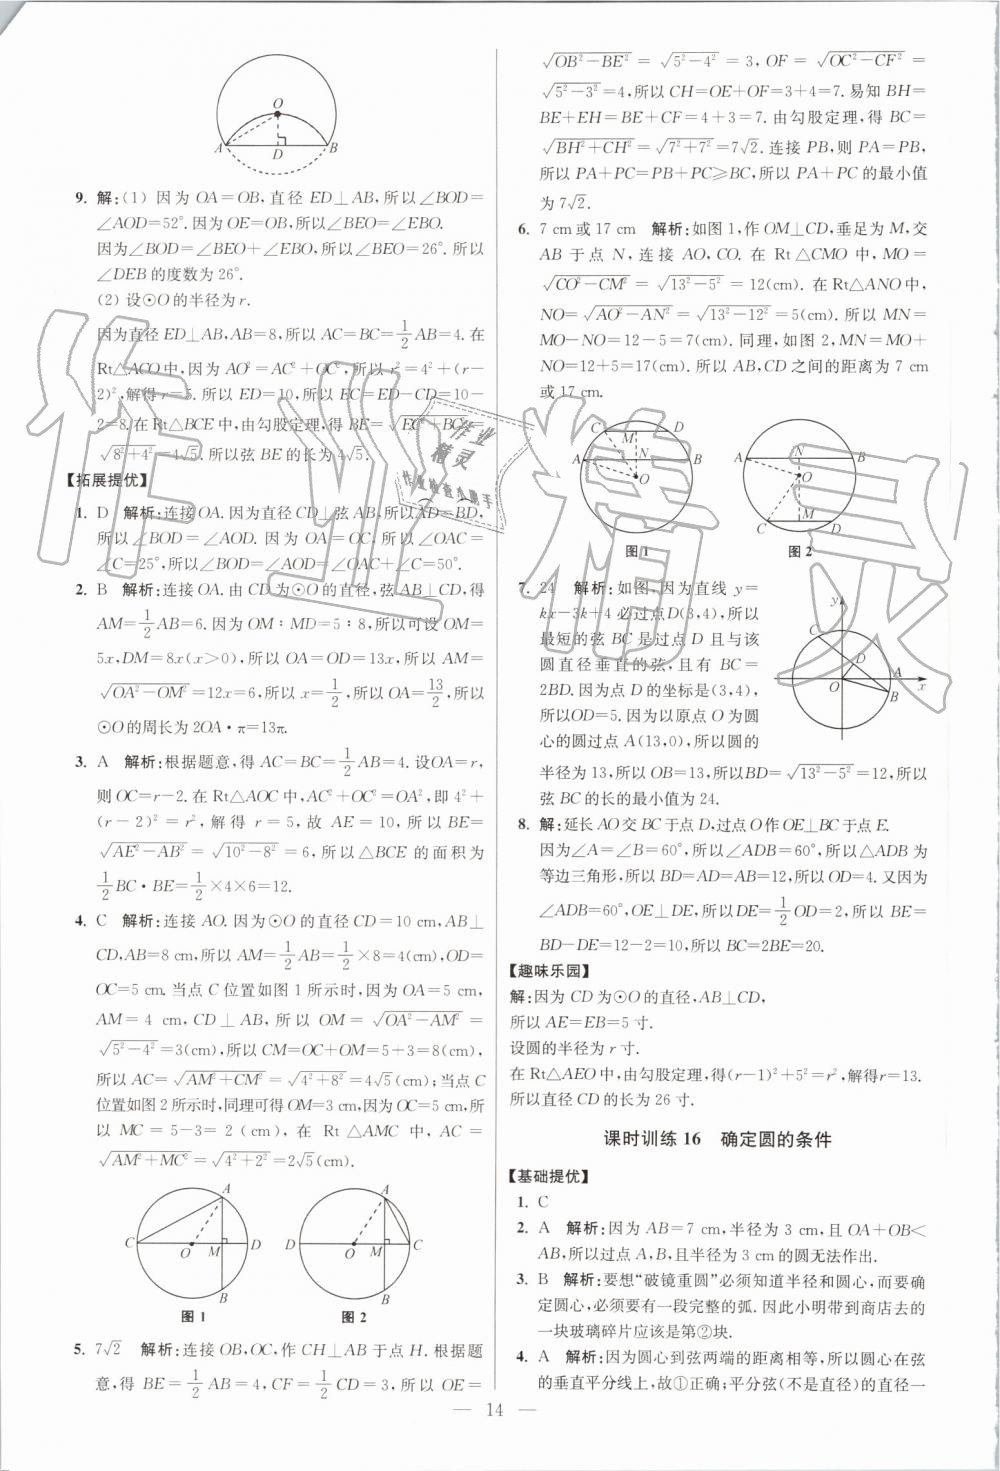 O
A
D
B
9. 解:(1) 因为 OA=OB,直径 ED⊥AB,所以∠BOD=
∠AOD=52°. 因为 OE=OB,所以∠BEO=∠EBO.
因为∠BOD=∠BEO+∠EBO,所以∠BEO=26°. 所以
∠DEB 的度数为 26°.
(2) 设⊙O 的半径为 r.
因为直径 ED⊥AB,AB=8,所以 AC=BC=1/2AB=4. 在
Rt△ACO 中,因为 AO²=AC²+OC²,所以 r²=4²+(r-
2)²,解得 r=5. 所以 ED=10,所以 EC=ED-CD=10-
2=8. 在 Rt△BCE 中,由勾股定理,得 BE=√(EC²+BC²)=
√(8²+4²)=4√5. 所以弦 BE 的长为 4√5.
【拓展提优】
1. D 解析:连接 OA. 因为直径 CD⊥弦 AB,所以AD=BD,
所以∠BOD=∠AOD. 因为 OA=OC,所以∠OAC=
∠C=25°,所以∠BOD=∠AOD=∠OAC+∠C=50°.
2. B 解析:连接 OA. 由 CD 为⊙O 的直径,弦 AB⊥CD,得
AM=1/2AB=6. 因为 OM∶MD=5∶8,所以可设 OM=
5x,DM=8x(x>0),所以 OA=OD=13x,所以 AM=
√(OA²-OM²)=12x=6,所以 x=1/2,所以 OA=13/2,所以
⊙O 的周长为 2OA·π=13π.
3. A 解析:根据题意,得 AC=BC=1/2AB=4. 设OA=r,
则 OC=r-2. 在 Rt△AOC 中,AC²+OC²=OA²,即 4²+
(r-2)²=r²,解得 r=5,故 AE=10,所以 BE=
√(AE²-AB²)=√(10²-8²)=6,所以△BCE 的面积为
1/2BC·BE=1/2×4×6=12.
4. C 解析:连接 AO. 因为⊙O 的直径 CD=10 cm,AB⊥
CD,AB=8 cm,所以 AM=1/2AB=1/2×8=4(cm),OD=
OC=5 cm. 当点 C 位置如图 1 所示时,因为 OA=5 cm,
AM=4 cm,CD⊥AB,所以 OM=√(OA²-AM²)=
√(5²-4²)=3(cm),所以 CM=OC+OM=5+3=8(cm),
所以 AC=√(AM²+CM²)=√(4²+8²)=4√5(cm);当点 C
位置如图 2 所示时,同理可得 OM=3 cm,因为 OC=5 cm,所
以 MC=5-3=2(cm),在 Rt△AMC 中,AC=
√(AM²+MC²)=√(4²+2²)=2√5(cm).
A
C
O
M
D
B
图 1
A
D
O
M
C
B
图 2
5. 7√2 解析:连接 OB,OC,作 CH⊥AB 于点 H. 根据题
意,得 BE=1/2AB=4,CF=1/2CD=3,所以 OE=
√(OB²-BE²)=√(5²-4²)=3,OF=√(OC²-CF²)=
√(5²-3²)=4,所以 CH=OE+OF=3+4=7. 易知 BH=
BE+EH=BE+CF=4+3=7. 由勾股定理,得 BC=
√(BH²+CH²)=√(7²+7²)=7√2. 连接 PB,则 PA=PB,
所以 PA+PC=PB+PC≥BC,所以 PA+PC 的最小值
为 7√2.
6. 7 cm或 17 cm 解析:如图 1,作 OM⊥CD,垂足为 M,交
AB 于点 N,连接 AO,CO. 在 Rt△CMO 中,MO=
√(CO²-CM²)=√(13²-5²)=12(cm). 在 Rt△ANO 中,
NO=√(AO²-AN²)=√(13²-12²)=5(cm). 所以 MN=
MO-NO=12-5=7(cm). 同理,如图 2,MN=MO+
NO=12+5=17(cm). 所以 AB,CD 之间的距离为 7 cm
或 17 cm.
C
M
D
A
N
B
O
图 1
A
N
B
O
C
M
D
图 2
7. 24 解析:如图,因为直线 y=
kx-3k+4 必过点 D(3,4),所以
最短的弦 BC 是过点 D 且与该
圆直径垂直的弦,且有 BC=
2BD. 因为点 D 的坐标是(3,4),
所以OD=5. 因为以原点 O 为圆
心的圆过点 A(13,0),所以圆的
半径为 13,所以 OB=13,所以BD=√(13²-5²)=12,所以
弦 BC 的长的最小值为 24.
y
C
D
A
O
B
x
8. 解:延长 AO 交 BC 于点 D,过点 O 作 OE⊥BC 于点 E.
因为∠A=∠B=60°,所以∠ADB=60°,所以△ADB 为
等边三角形,所以 BD=AD=AB=12,所以 OD=4. 又因为
∠ADB=60°,OE⊥DE,所以DE=1/2OD=2,所以 BE=
BD-DE=12-2=10,所以 BC=2BE=20.
【趣味乐园】
解:因为 CD 为⊙O 的直径,AB⊥CD,
所以 AE=EB=5 寸.
设圆的半径为 r 寸.
在 Rt△AEO 中,由勾股定理,得(r-1)²+5²=r²,解得r=13.
所以直径 CD 的长为 26 寸.
课时训练 16 确定圆的条件
【基础提优】
1. C
2. A 解析:因为 AB=7 cm,半径为 3 cm,且 OA+OB<
AB,所以过点 A,B,且半径为 3 cm 的圆无法作出.
3. B 解析:要想“破镜重圆”必须知道半径和圆心,而要确
定圆心,必须要有一段完整的弧. 因此小明带到商店去的
一块玻璃碎片应该是第②块.
4. A 解析:因为圆心到弦两端的距离相等,所以圆心在弦
的垂直平分线上,故①正确;平分弦(不是直径)的直径一
— 14 —
作业精灵
作业精灵
作业检查小助手